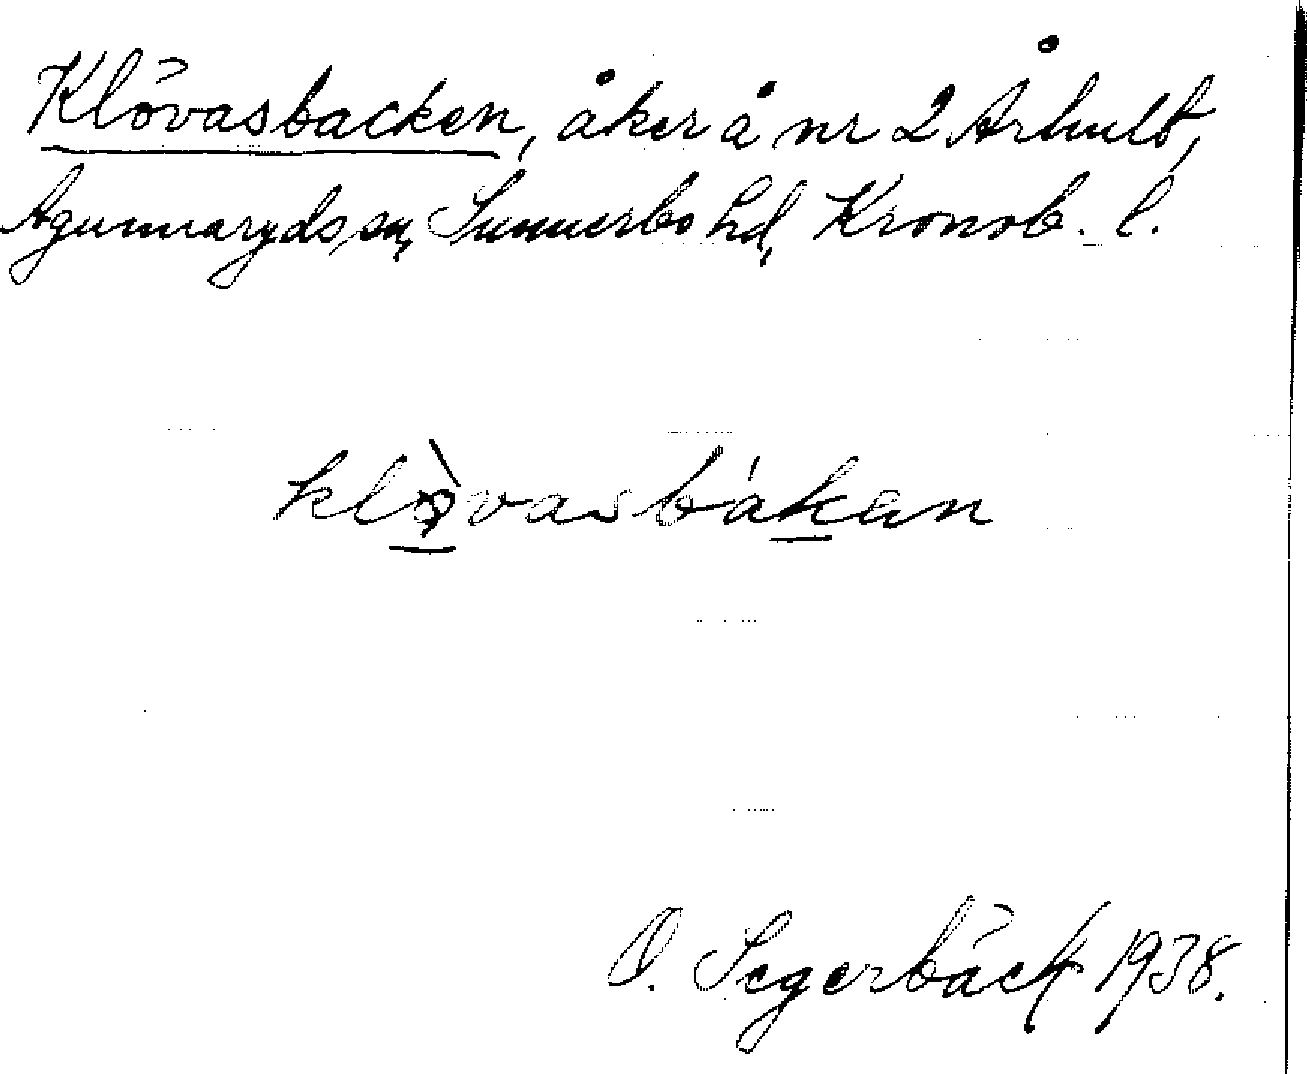 Klövasbacken, åker å nr 2 Århult,
Agunnaryds sn, Sunnerbo hd, Kronob. l.
klò̱vasbáḵan
O. Segerbäck 1938.